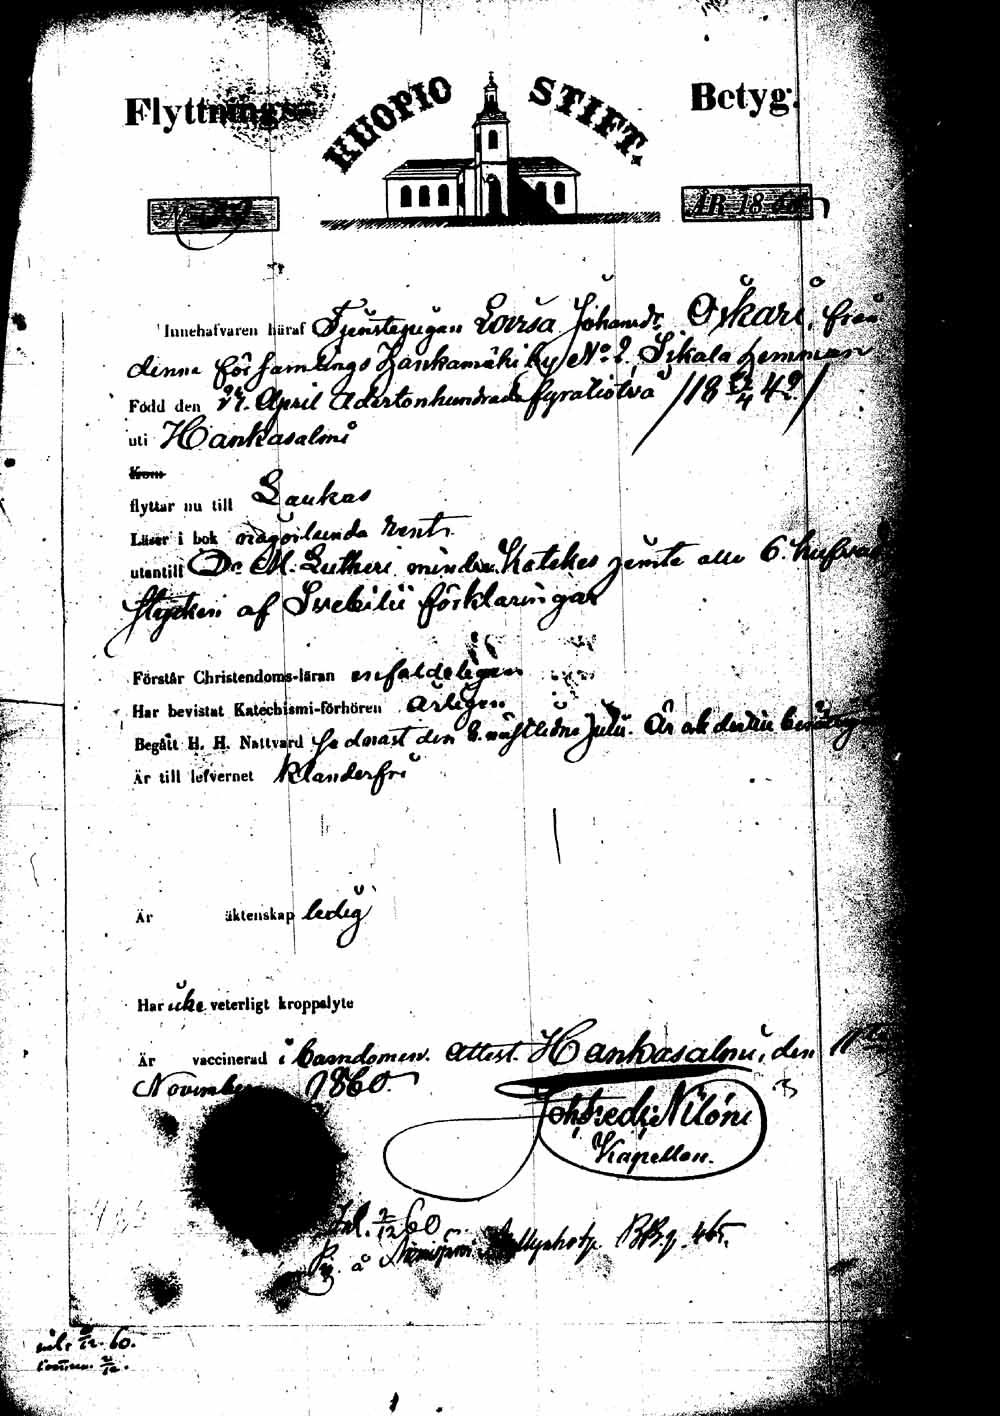 Flyttnings- KUOPIO STIFT. Betyg.
N ÅR 18
Innehafvaren häraf Tjenstepigan Lovisa Johansdr Oskari, från
denna församlings Hankamäki by No 2, Sikala hemman
Född den 27. April Adertonhundrade fyratiotvå /18 27/4 42/
uti Hankasalmi
Kom
flyttar nu till Laukas
Läser i bok någorlunda rent
utantill Dr M. Lutheri mindre Katekes jemte alla 6. hufvud
stycken af Svebilii förklaringar
Förstår Christendoms-läran enfaldeligen
Har bevistat Katechismi-förhören Årligen
Begått H. H. Nattvard sednast den 8. nästledne Julii. Är ock dertill
Är till lefvernet Klanderfri
Är äktenskap ledig
Har icke veterligt kroppslyte
Är vaccinerad i barndomen. Attest. Hankasalmi, den 11
November 1860.
Joh: Fredr: Nilóni
Kapellan.
Inl. 2/12 60
å BB. p. 465.
2/12. 60.
2/12.